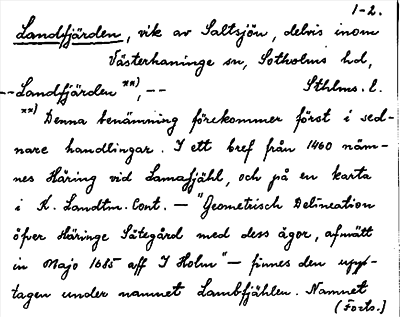 1-2.
Landfjärden, vik av Saltsjön, delvis inom
Västerhaninge sn, Sotholms hd,
--Landfjärden **), -- Sthlms. l.
**) Denna benämning förekommer först i sed-
nare handlingar. I ett bref från 1460 näm-
nes Häring vid Lanafjähl, och på en karta
i K. Landtm. Cont. — "Geometisch Delineation
öfver Häringe Sätegård med dess ägor, afmätt
in Majo 1685 aff I Holm" — finnes den upp-
tagen under namnet Lambfjählen. Namnet
(Forts.)